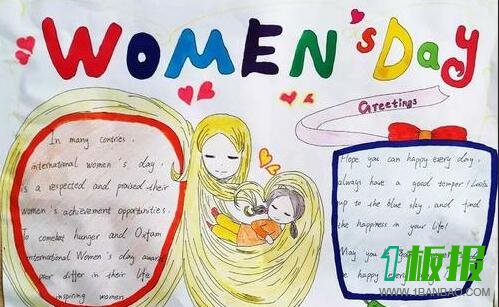 WOMEN'S DAY
Greetings
In many contries,
international women's day,
is a respected and praised their
women's achievement opportunities.
To combat hunger and Oxfam
International Women's day award
poor differ in their life
inspiring women
Hope you can happy every day,
always have a good temper!
up to the blue sky, and find
the happiness in your life!
May you
be happy every
1板报
WWW.1BANBAO.COM